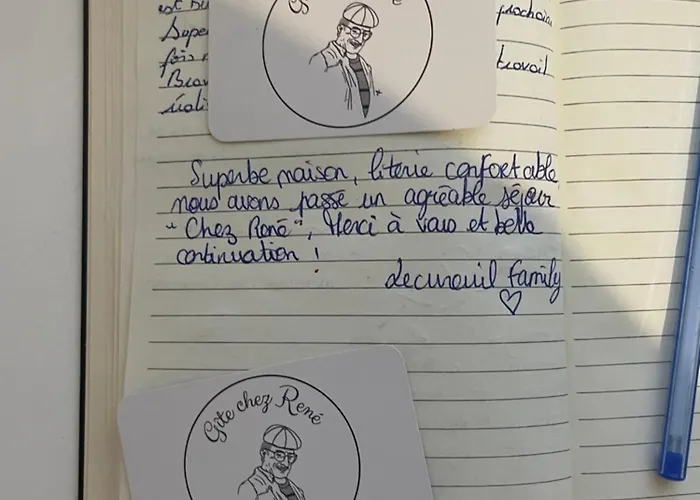 est
prochain
Supe
fois
travail
Brav
réali
Superbe maison, literie confortable
nous avons passé un agréable séjour
"Chez René", Merci à vous et belle
continuation !
Lecureuil family
Gîte chez René